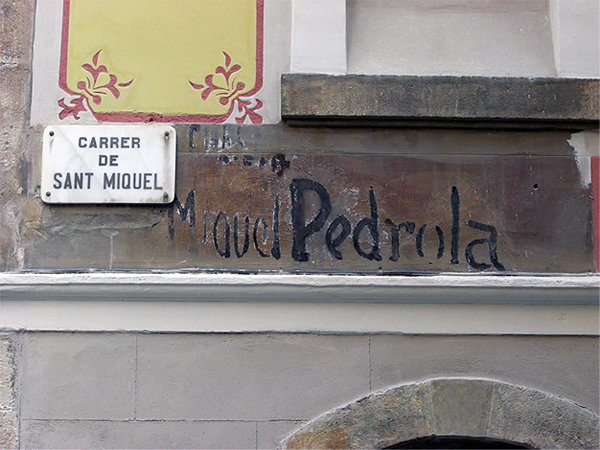 CARRER
DE
SANT MIQUEL
Miquel Pedrola